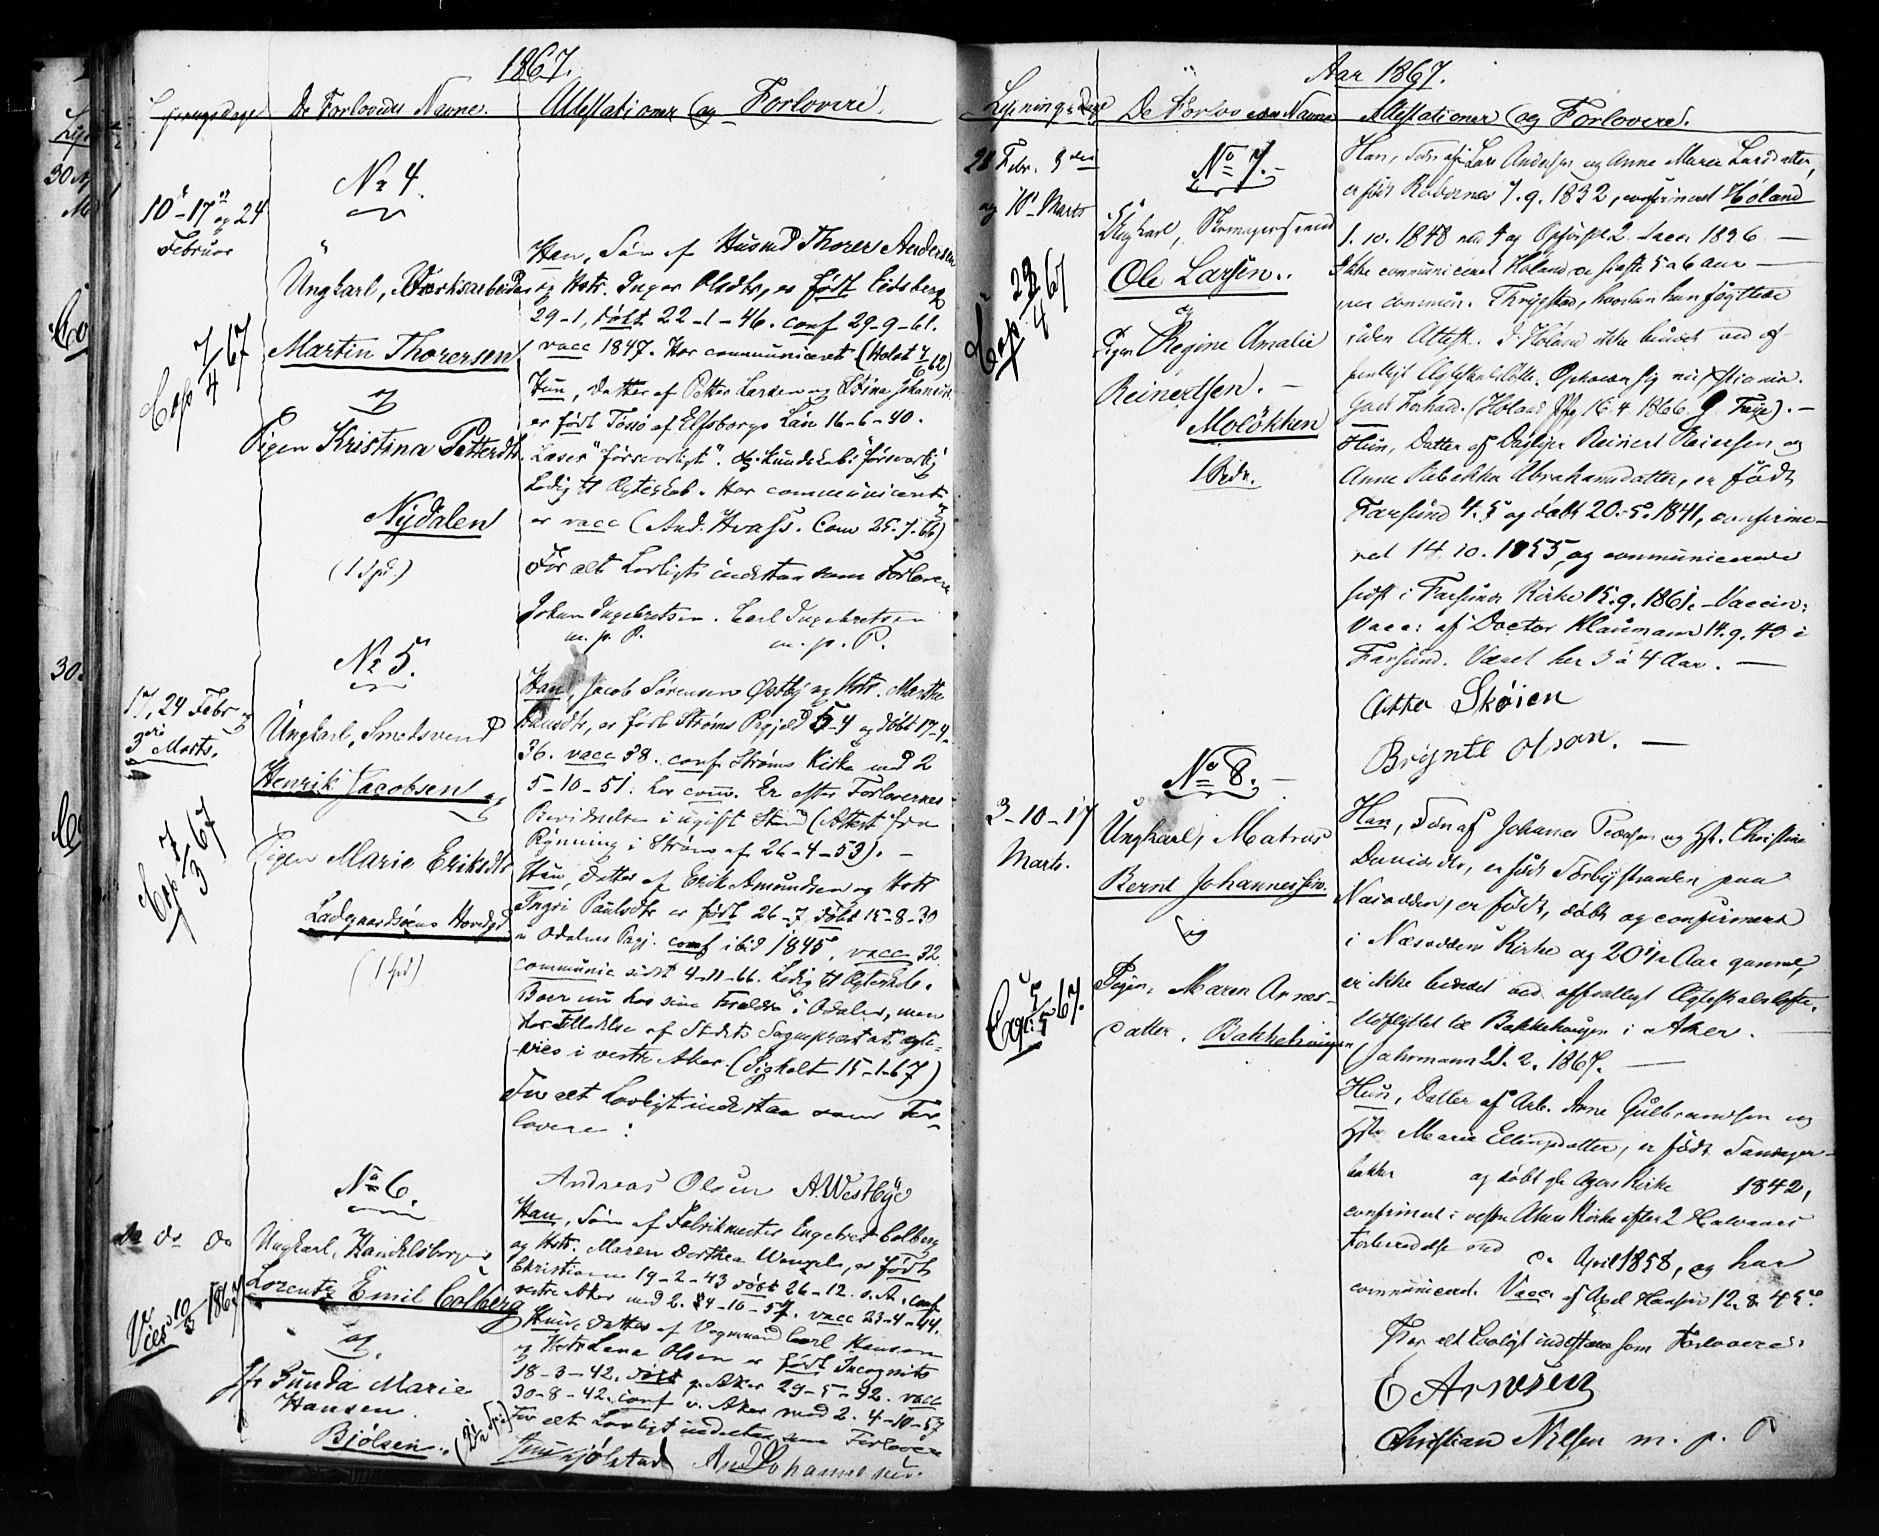 1867.
De Forlovedes Navne. Attestationer og Forlovere.
No 4.
10de - 17de og 24
Februar
Cop 7/4 67
Ungkarl, Værksarbeider
Martin Thorersen
og
Pigen Kristina Petterdtr
Nydalen
(1 Spd.)
Han, Søn af Husmd Thorer Andersen
og Hstr. Inger Olsdtr, er født Eidsberg
29-1, døbt 22-1-46. conf 29-9-61.
vacc 1847. Har communiceret (Holst
Hun, Datter af Petter Larsen og Stina
er født Tösö af Elfsborgs Län 16-6-40.
Læser "försvarligt". Kundskab: försvarlig
Ledig til Ægteskab. Har communiceret og
er vacc (And. Hvass. Com 25-7-66)
For alt Lovligt indestaar som Forlovere
Johan Ingebretsen. Carl Ingebretsen
m. p. P. m. p. P.
No 5.
17, 24 Febr og
3die Marts.
Cop 7/3 67
Ungkarl, Smedsvend
Henrik Jacobsen og
Pigen Marie Eriksdtr
Ladegaardsøens Hovedgd
(1 Spd)
Han, Jacob Sørensen Østby og Hstr. Marthe
er født Strøms Pgjeld 5-4 og døbt 17-4-
36. vacc 38. conf Strøms Kirke med 2
5-10-51. har com. Er efter Forlovernes
Bevidnelse i ugift Stand (Attest fra
Rynning i Strøm af 26-4-53). -
Hun, Datter af Erik Amundsen og Hstr
Ingri Paulsdtr er født 26-7 døbt 15-8-30
i Odalens Pgj. conf ibid 1845, vacc 32
communic sidst 4-11-66. Ledig til Ægteskab.
Boer nu hos sine Forældre i Odalen, men
har Tilladelse af Stedets Sognepræst at ægte-
vies i vestre Aker. (Sigholt 15-1-67)
For alt Lovligt indestaa som For-
lovere:
Andreas Olsen A. Westbye
No 6.
do do do
Vies 10/3 1867
Ungkarl, Handelsborger
Lorentz Emil Colberg
og
Jfr Gunda Marie
Hansen
Bjølsen.
(2½ Spd)
Han, Søn af Fabrikmester Engebret Colberg
og Hstr. Maren Dorthea Wengel, er født
Christiania 19-2-43 døbt 26-12. s. A. conf
vestre Aker med 2. 4-10-57. vacc 23-4-44.
Hun, Datter af Vognmand Carl Hansen
og Hstr Lena Olsen er født Incognito
18-3-42, døbt v. Aker 29-5-42. vacc
30-8-42. conf v. Aker med 2. 4-10-57
For alt Lovligt indestaa som Forlovere
Kjølstad And Johannesen.
Aar 1867.
Lysningsdage De Forlovedes Navne Attestationer og Forlovere.
No 7.
Febr. 3die
og 10de Marts
Cop 67
Ungkarl, Skomagersvend
Ole Larsen.
og
Pigen Regine Amalie
Reinertsen. -
Moløkken
1 Spdr.
Han, Søn af Lars Andersen og Anne Marie Larsdatter,
er født Rødenes 7.9.1832, confirmeret Høland
1.10.1848 med 4 og Opførsel 2. Vacc 1836 -
Ikke communiceret Høland de sidste 5 a 6 Aar -
men commun. Thrygstad, hvorhen han flyttede
uden Attest. I Høland ikke bundet ved of-
fentligt Ægteskabsløfte. Opholder sig nu i Xstiania.
Godt Forhold. (Høland Pfg 16.4.1866. Faye). -
Hun, Datter af Dagleier Reinert Reiersen og
Anne Rebekka Abrahamsdatter, er født
Farsund 4.5 og døbt 20.5.1841, confirme-
ret 14.10.1855, og communicerede
sidst i Farsunds Kirke 15.9.1861. - Vaccin:
Vacc: af Doctor Klaumann 14.9.43 i
Farsund. Været her 3 à 4 Aar. -
Atter Skøien
Brynte Olsen. -
No 8. -
3-10-17
Marts.
Cop: 5/5 67.
Ungkarl, Matros
Bernt Johannessen
og
Pigen, Maren Arnes-
datter. Bakkehaugen
Han, Søn af Johannes Pedersen og Hst. Christine
Davidsdtr, er født Torbystranden paa
Næsodden, er født, døbt og confirmeret
i Næsoddens Kirke og 20½ Aar gammel,
er ikke bundet ved offentligt Ægteskabsløfte.
Udflyttet til Bakkehaugen i Aker.
(Jahrmann 21.2.1867. -
Hun, Datter af Arb. Arne Gulbrandsen og
Hstr Marie Ellingsdatter, er født Tandager-
bakken og døbt gl. Agers Kirke 1842,
confirmeret i vestre Akers Kirke efter 2 Halvaars
Forberedelse med c. April 1858, og har
communiceret. Vacc. af Axel Hansen 12.8.45.
For alt Lovligt indestaa som Forlovere:
E Arnesen
Christian Nielsen m. p. P